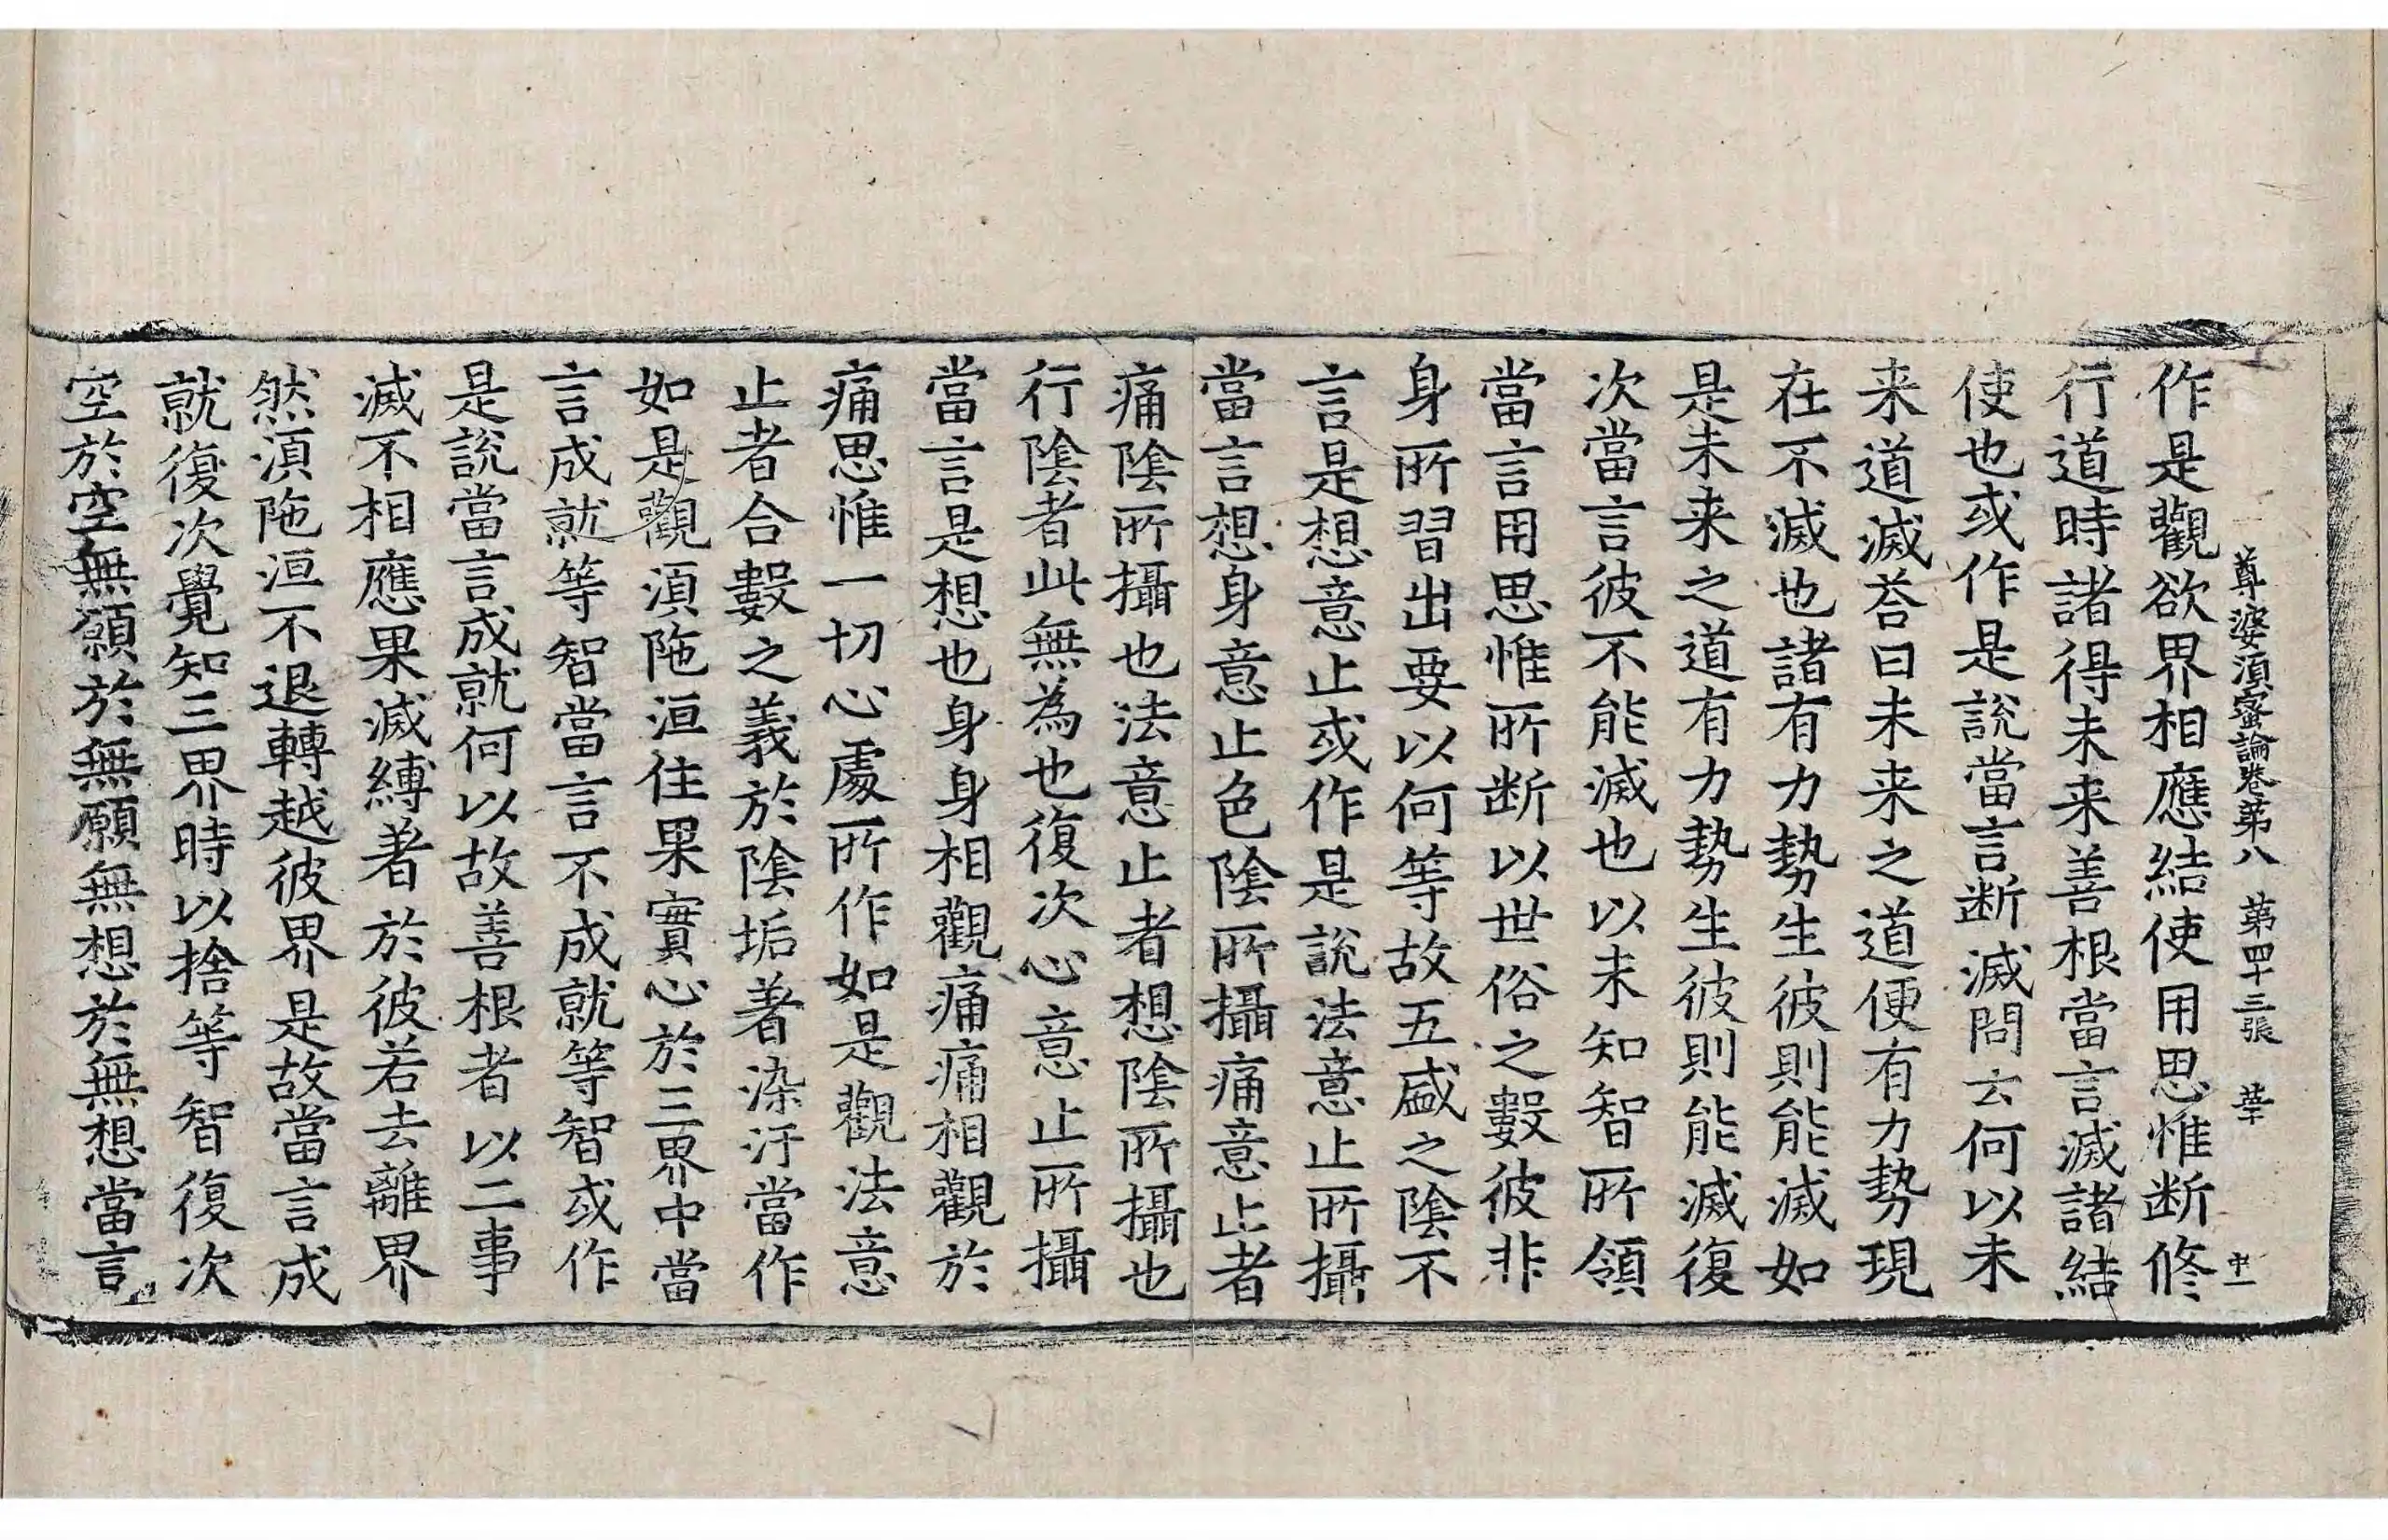 尊婆湏蜜論卷苐八 苐四十三張 中一
作是觀欲界相應結使用思惟断修
行道時諸得未来善根當言滅諸結
使也或作是說當言断滅問云何以未
来道滅荅曰未来之道便有力勢現
在不滅也諸有力勢生彼則能滅如
是未来之道有力勢生彼則能滅復
次當言彼不能滅也以未知智所領
當言用思惟所断以世俗之數彼非
身所習出要以何等故五盛之陰不
言是想意止或作是說法意止所攝
當言想身意止色陰所攝痛意止者
痛陰所攝也法意止者想陰所攝也
行陰者此無為也復次心意止所攝
當言是想也身身相觀痛痛相觀於
痛思惟一切心處所作如是觀法意
止者合數之義於陰垢著染汙當作
如是觀湏陁洹住果實心於三界中當
言成就等智當言不成就等智或作
是說當言成就何以故善根者以二事
滅不相應果滅縛著於彼若去離界
然湏陁洹不退轉越彼界是故當言成
就復次覺知三界時以捨等智復次
空於空無願於無願無想於無想當言